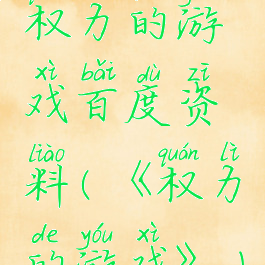 权力的游
xì bǎi dù zī
戏百度资
liào quán lì
料(《权力
de yóu xì
的游戏》)